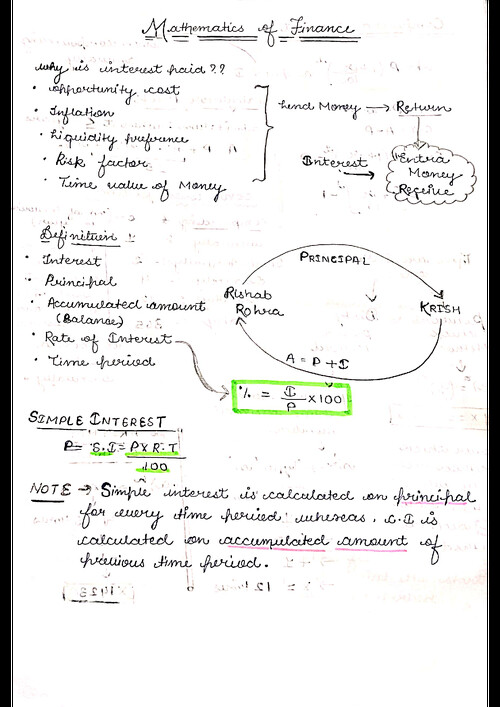 Mathematics of Finance
why is interest paid ??
• opportunity cost
• Inflation
• Liquidity preference
• Risk factor
• Time value of Money
Lend Money → Return
Interest →
Extra
Money
Receive
Definition :
• Interest
• Principal
• Accumulated amount
(Balance)
• Rate of Interest
• Time period
PRINCIPAL
Rishab
Rohra
KRISH
A = P + I
% = I/P × 100
SIMPLE INTEREST
P= S.I = P×R.T
100
NOTE → Simple interest is calculated on principal
for every time period whereas, C.I is
calculated on accumulated amount of
previous time period.